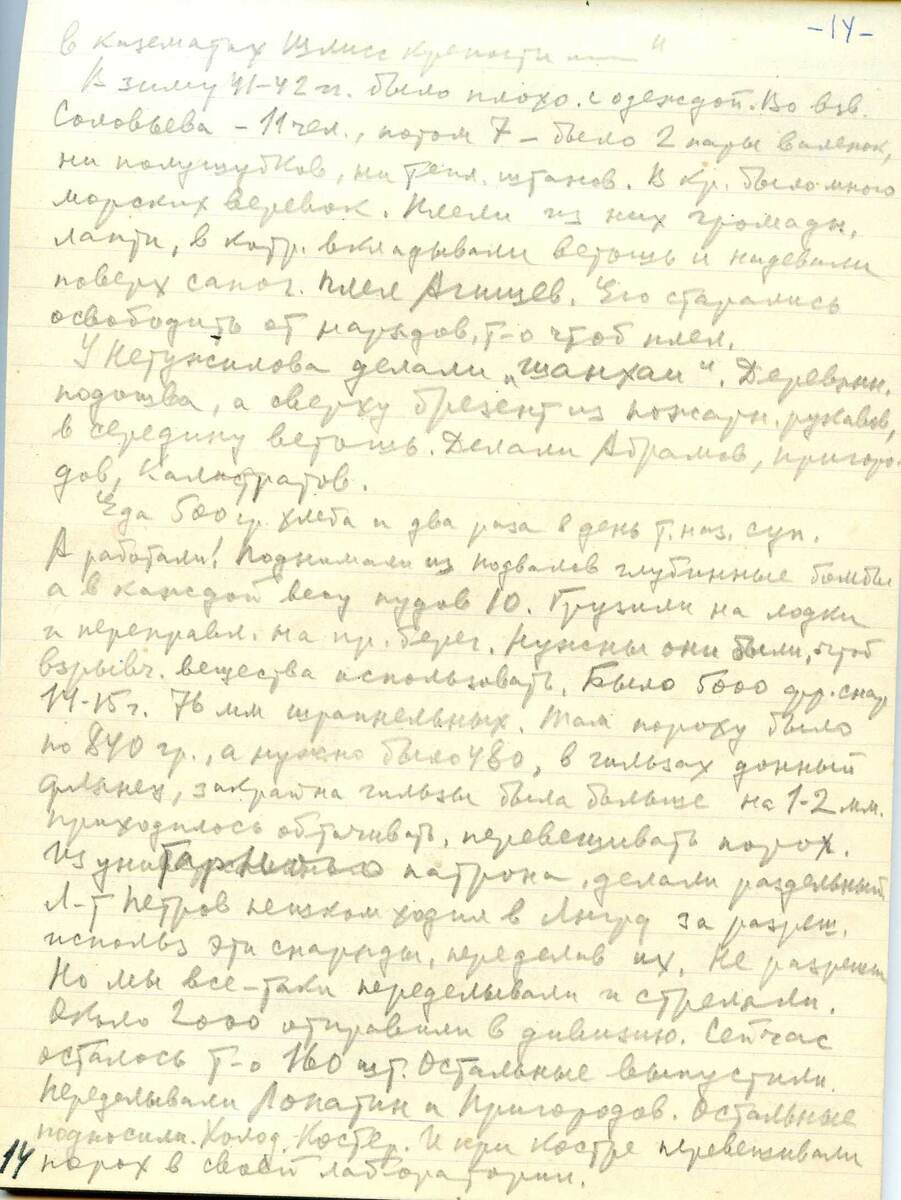 -14-
в казематах Шлисс крепости —"
В зиму 41-42 гг. было плохо с одеждой. Во взв.
Соловьева - 11 чел., потом 7 - было 2 пары валенок,
ни полушубков, ни тепл. штанов. В кр. было много
морских веревок. Плели из них громадн.
лапти, в котр. вкладывали ветошь и надевали
поверх сапог. Плел Агишев. Его старались
освободить от нарядов, т-о чтоб плел.
У Нетужилова делали „шанхаи". Деревянн.
подошва, а сверху брезент из пожарн. рукавов,
в середину ветошь. Делали Абрамов, Пригоро-
дов, Калистратов.
Еда 500 гр. хлеба и два раза в день т. наз. суп.
А работали! Поднимали из подвалов глубинные бомбы
а в каждой весу пудов 10. Грузили на лодки
и переправл. на пр. берег. Нужны они были, чтоб
взрывч. вещества использовать. Было 5000 фр. снар
14-15 г. 76 мм шрапнельных. Там пороху было
по 840 гр., а нужно было 480, в гильзах донный
фланец, закраина гильзы была больше на 1-2 мм.
Приходилось обтачивать, перевешивать порох.
Из унитарного патрона, делали раздельный
Л-т Петров пешком ходил в Лнгрд за разреш.
использ эти снаряды, переделав их. Не разрешили
Но мы все-таки переделывали и стреляли.
Около 2000 отправили в дивизию. Сейчас
осталось т-о 160 шт. Остальные выпустили.
Переделывали Лопатин и Пригородов. Остальные
подносили. Холод. Костер. И при костре перевешивали
порох в своей лаборатории.
14